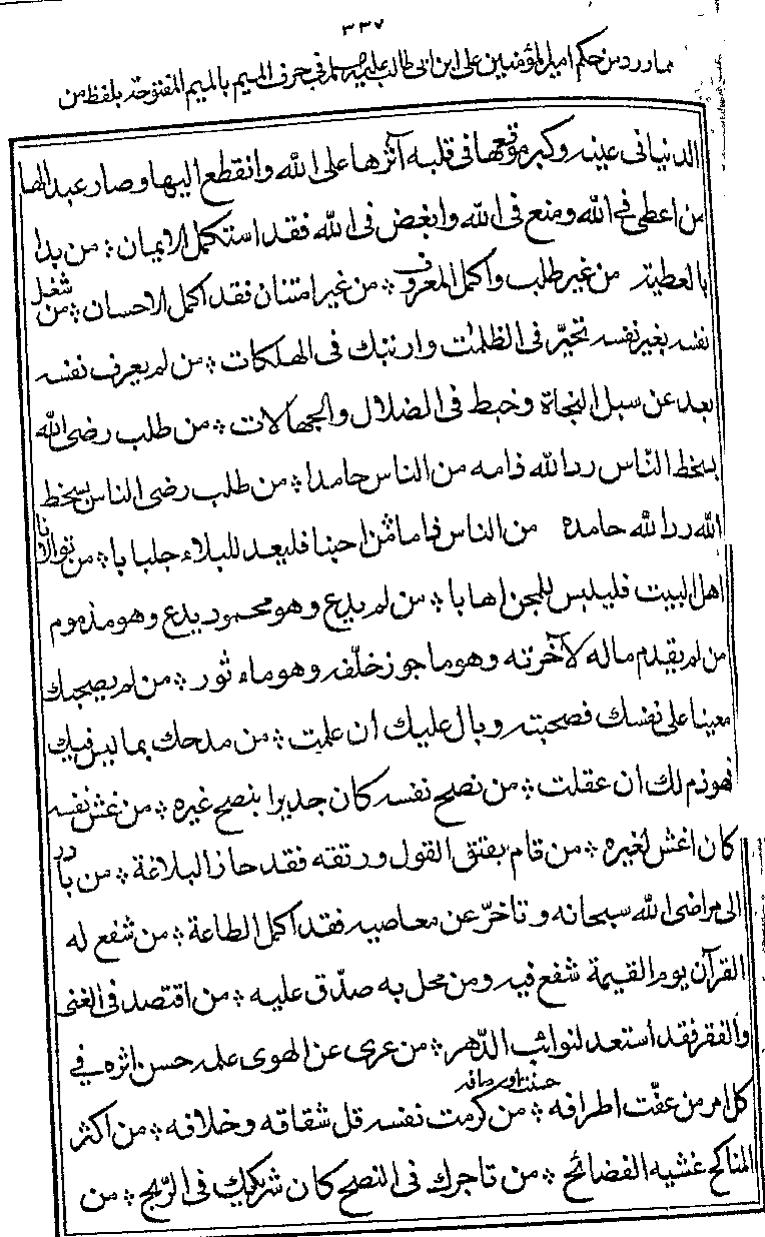 ٣٣٧
مما ورد من حكم امير المؤمنين على ابن ابى طالب عليه السلم فى حرف الميم بالميم المفتوحة بلفظ من
الدنيا فى عينه وكبر موقعها فى قلبه آثرها على الله وانقطع اليها وصار عبدا لها
من اعطى فى الله ومنع فى الله وابغض فى الله فقد استكمل الايمان ؞ من بدا
بالعطية من غير طلب واكمل المعروف ؞ من غير امتنان فقد اكمل الاحسان ؞ من شغل
نفسه بغير نفسه تحيّر فى الظلمٰت وارتبك فى الهلكات ؞ من لم يعرف نفسه
بعد عن سبل النجاة وخبط فى الضلال والجهالات ؞ من طلب رضى الله
بسخط النّاس رد الله ذامه من الناس حامدا ؞ من طلب رضى الناس بسخط
الله رد الله حامده من الناس ذاما ؞ من احبنا فليعد للبلاء جلبابا ؞ من توالانا
اهل البيت فليلبس للمحن اهابا ؞ من لم يدع وهو محمود يدع وهو مذموم
من لم يقدم ماله لآخرته وهو ماجور خلّفه وهو ماء ثور ؞ من لم يصحبك
معينا على نفسك فصحبته وبال عليك ان علمت ؞ من مدحك بما ليس فيك
فهو ذم لك ان عقلت ؞ من نصح نفسه كان جديرا بنصح غيره ؞ من غش نفسه
كان اغش لغيره ؞ من قام بفتق القول ورتقه فقد حاز البلاغة ؞ من بادر
الى مراضى الله سبحانه وتاخرّ عن معاصيه فقد اكمل الطاعة ؞ من شفع له
القرآن يوم القيمة شفع فيه ومن محل به صدّق عليه ؞ من اقتصد فى الغنى
والفقر فقد استعد لنوائب الدّهر ؞ من عرى عن الهوى عمله حسن اثره فى
كل امر من عفّت اطرافه ؞ حسنت اوصافه من كرمت نفسه قل شقاقه وخلافه ؞ من اكثر
المناكح غشيه الفضائح ؞ من تاجرك فى النصح كان شريكك فى الرّبح ؞ من